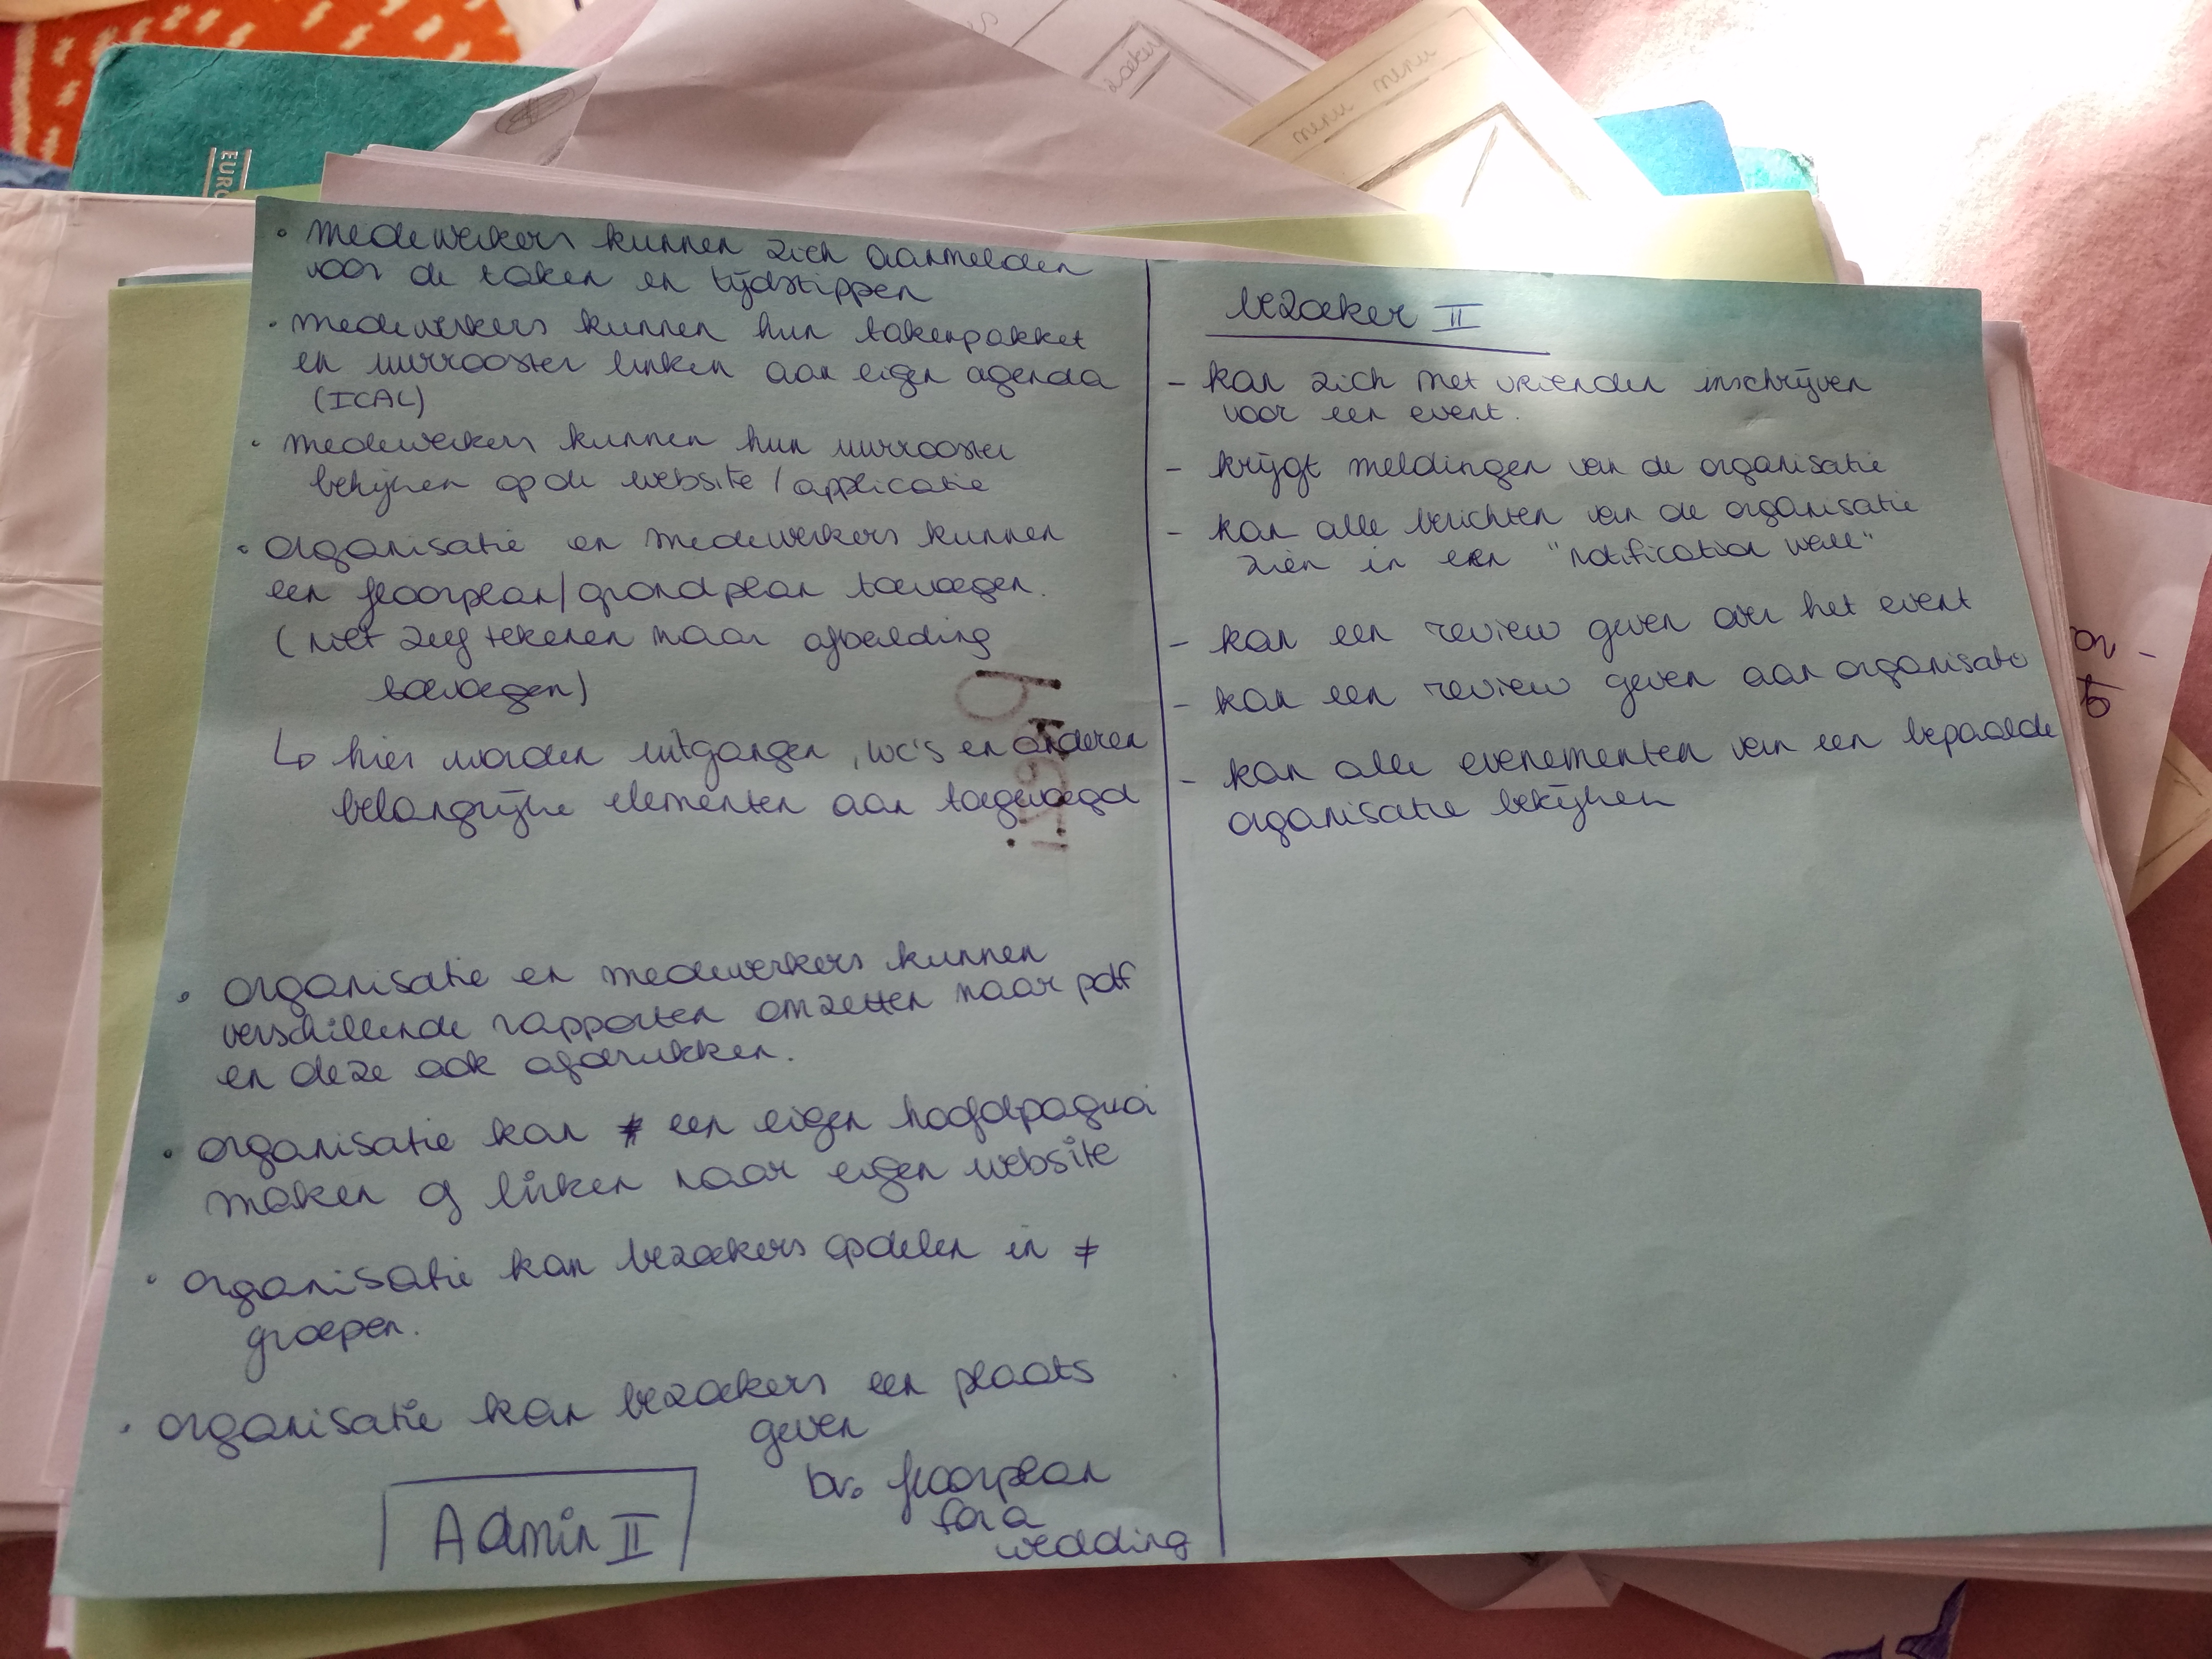 • medewerkers kunnen zich aanmelden
voor de taken en tijdstippen
• medewerkers kunnen hun takenpakket
en uurrooster linken aan eigen agenda
(ICAL)
• medewerkers kunnen hun uurrooster
bekijken op de website / applicatie
• organisatie en medewerkers kunnen
een floorplan/grondplan toevoegen.
(niet zelf tekenen maar afbeelding
toevoegen)
↳ hier worden uitgangen, wc's en anderen
belangrijke elementen aan toegevoegd
• organisatie en medewerkers kunnen
verschillende rapporten omzetten naar pdf
en deze ook afdrukken.
• organisatie kan een eigen hoofdpagina
maken of linken naar eigen website
• organisatie kan bezoekers opdelen in ≠
groepen.
• organisatie kan bezoekers een plaats
geven
bv. floorplan
for a
wedding
Admin II
bezoeker II
- kan zich met vrienden inschrijven
voor een event.
- krijgt meldingen van de organisatie
- kan alle berichten van de organisatie
zien in een "notification wall"
- kan een review geven over het event
- kan een review geven aan organisatie
- kan alle evenementen van een bepaalde
organisatie bekijken
menu menu
EURO